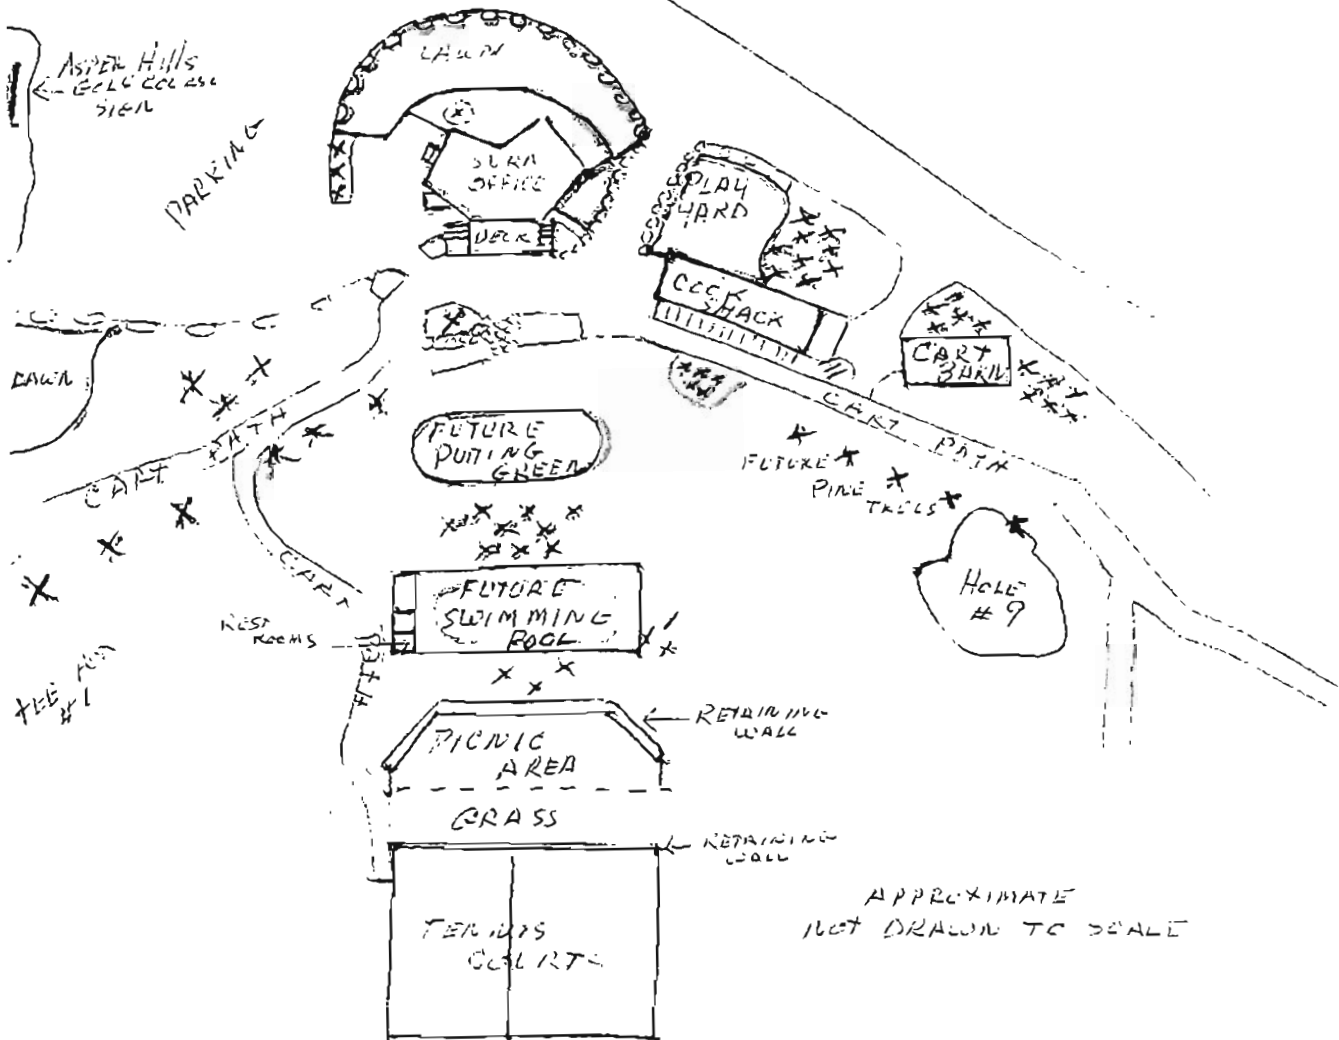 LAWN
ASPEN HILLS
GOLF COURSE
SIGN
PARKING
OFFICE
DECK
PLAY
YARD
COOK
SHACK
CART
BARN
LAWN
CART PATH
CART PATH
FUTURE
PUTTING
GREEN
FUTURE
PINE
TREES
CART
FUTURE
SWIMMING
POOL
REST
ROOMS
HOLE
#9
TEE FOR
#1
RETAINING
WALL
PICNIC
AREA
GRASS
RETAINING
WALL
TENNIS
COURTS
APPROXIMATE
NOT DRAWN TO SCALE